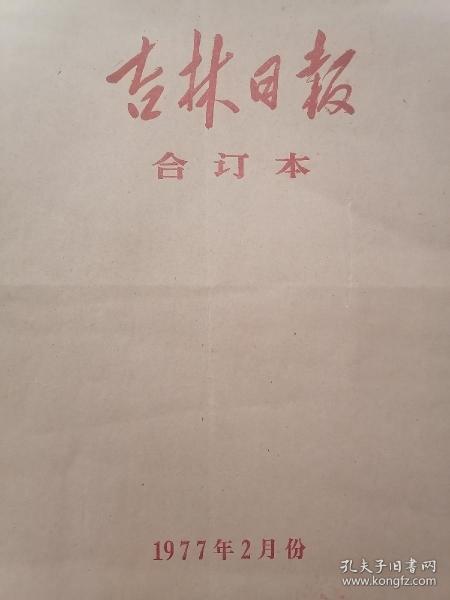 吉林日报
合订本
1977年2月份
孔夫子旧书网
www.kongfz.com